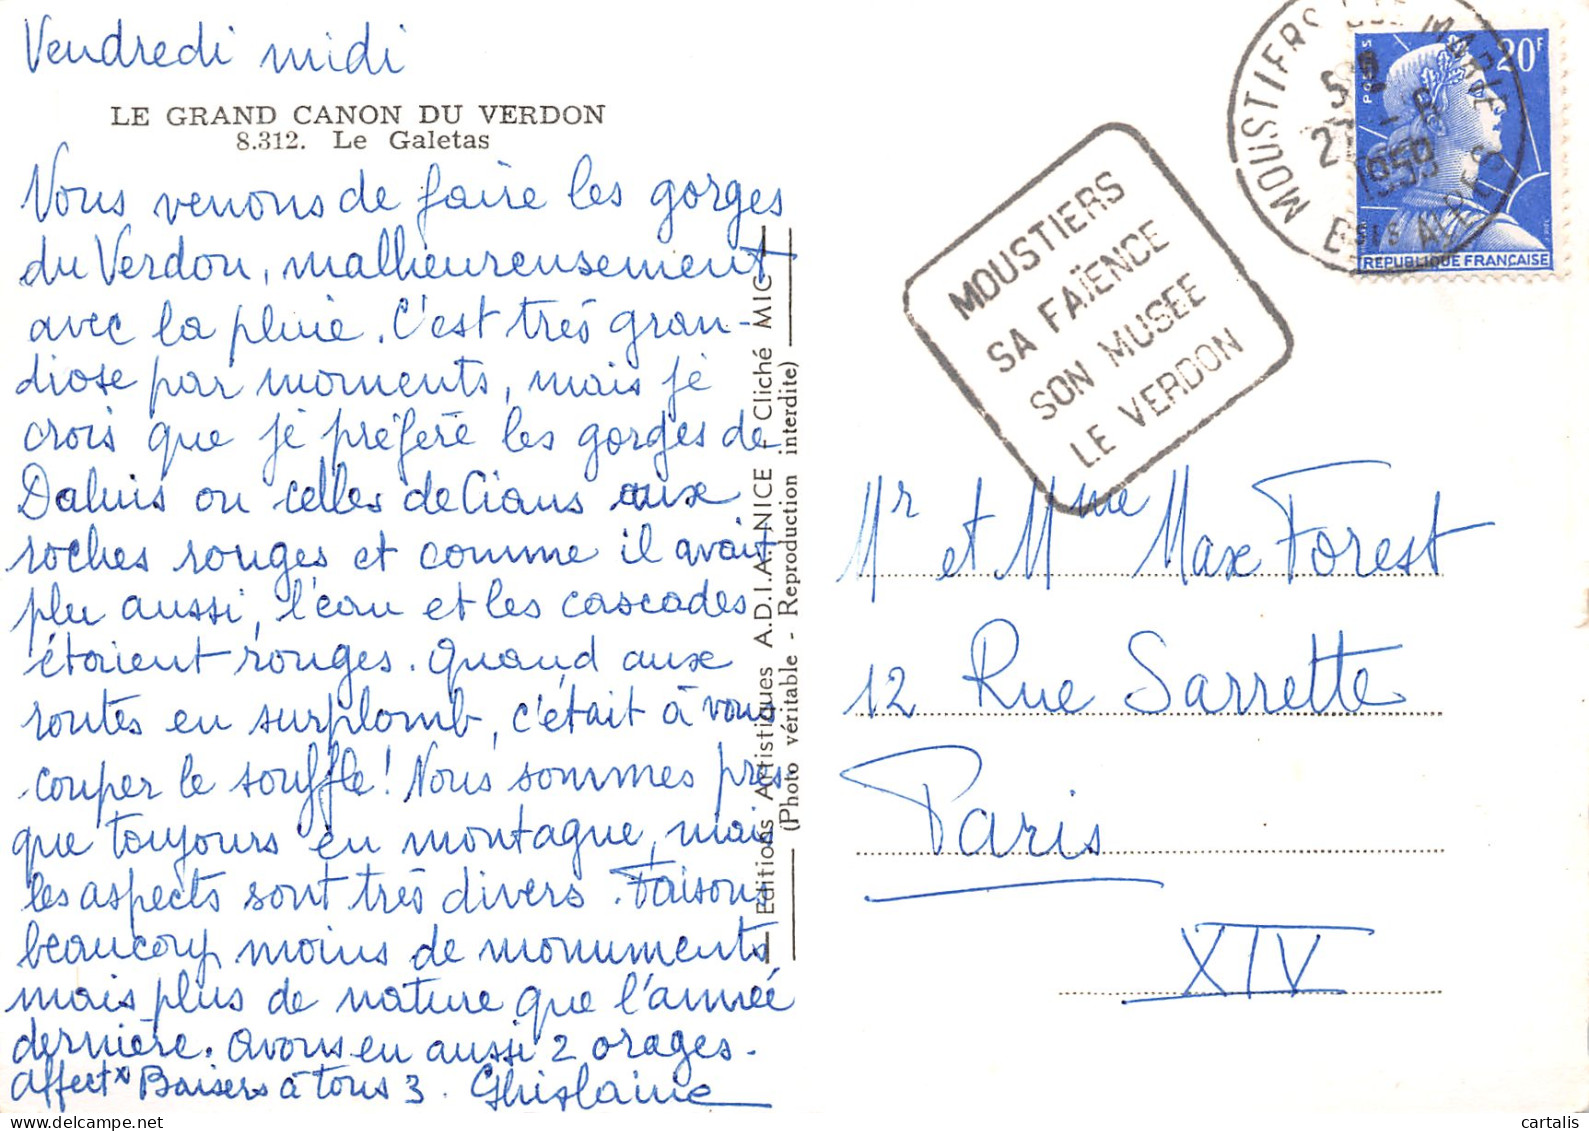 Vendredi midi
LE GRAND CANON DU VERDON
8.312. Le Galetas
Vous venons de faire les gorges
du Verdon, malheureusement
avec la pluie. C'est très gran-
diose par moments, mais je
crois que je préfère les gorges de
Daluis ou celles de Cians aux
roches rouges et comme il avait
plu aussi, l'eau et les cascades
étaient rouges. Quand aux
routes en surplomb, c'était à vous
couper le souffle! Nous sommes près
que toujours en montagne, mais
les aspects sont très divers. Faisons
beaucoup moins de monuments
mais plus de nature que l'année
dernière. Avons eu aussi 2 orages.
Affect.x Baisers à tous 3. Ghislaine
Editions Artistiques A.D.I.A. NICE - Cliché MIC
(Photo véritable - Reproduction interdite)
MOUSTIERS
SA FAÏENCE
SON MUSEE
LE VERDON
MOUSTIERS STE MARIE
1959
BSES ALPES
POSTES
20F
REPUBLIQUE FRANÇAISE
Mr et Mme Max Forest
12 Rue Sarrette
Paris
XIV
delcampe.net
cartalis